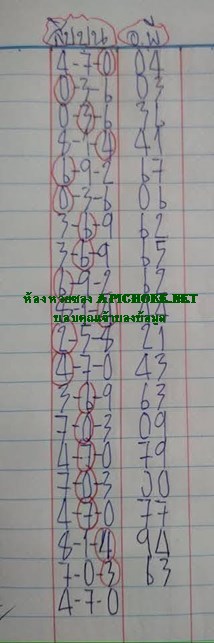 สิบบน อ.พี
4-7-0 04
0-3-6 03
0-3-6 36
8-1-4 41
6-9-2 67
0-3-6 06
3-6-9 62
3-6-9 65
6-9-2
ห้องหวยซอง APICHOKE.NET
2-5-8 21
ขอบคุณเจ้าของข้อมูล
4-7-0 43
3-6-9 63
7-0-3 09
4-7-0 79
7-0-3 00
4-7-0 77
8-1-4 94
7-0-3 63
4-7-0